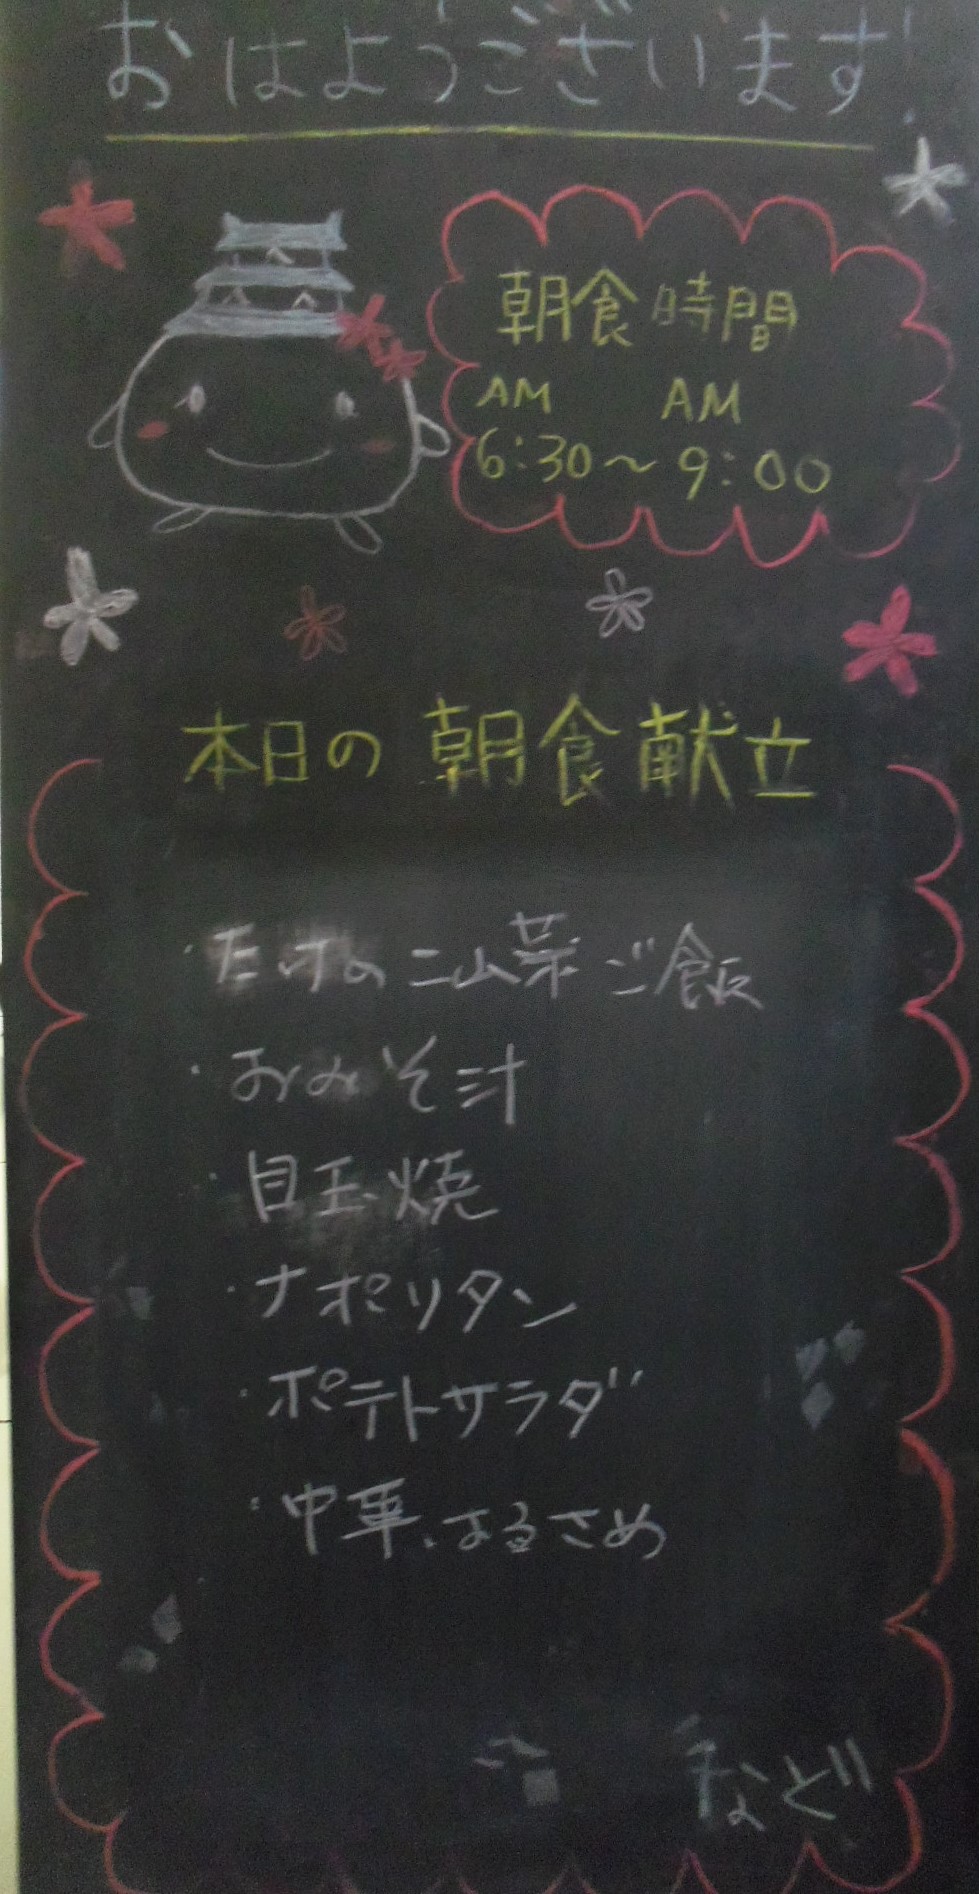 おはようございます!
朝食時間
AM AM
6:30～9:00
本日の朝食献立
・たけのこ山菜ご飯
・おみそ汁
・目玉焼
・ナポリタン
・ポテトサラダ
・中華はるさめ
など